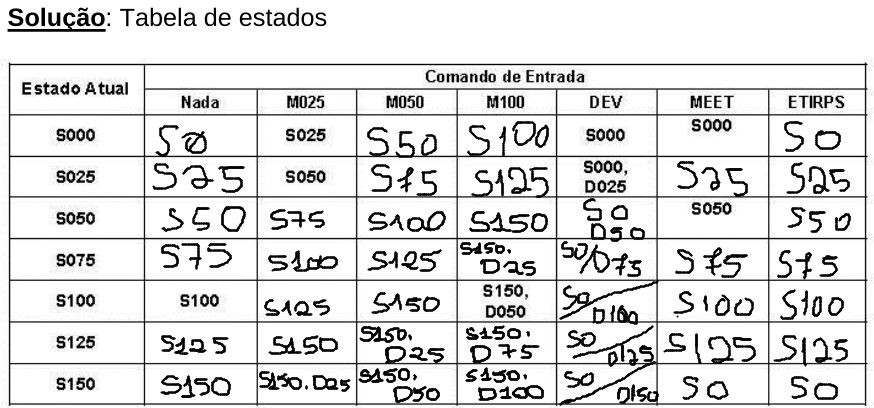 Solução: Tabela de estados
Estado Atual Comando de Entrada
Nada M025 M050 M100 DEV MEET ETIRPS
S000 S0 S025 S50 S100 S000 S000 S0
S025 S25 S050 S75 S125 S000, D025 S25 S25
S050 S50 S75 S100 S150 S0 D50 S050 S50
S075 S75 S100 S125 S150, D25 S0/D75 S75 S75
S100 S100 S125 S150 S150, D050 S0/D100 S100 S100
S125 S125 S150 S150, D25 S150, D75 S0/D125 S125 S125
S150 S150 S150, D25 S150, D50 S150, D100 S0/D150 S0 S0